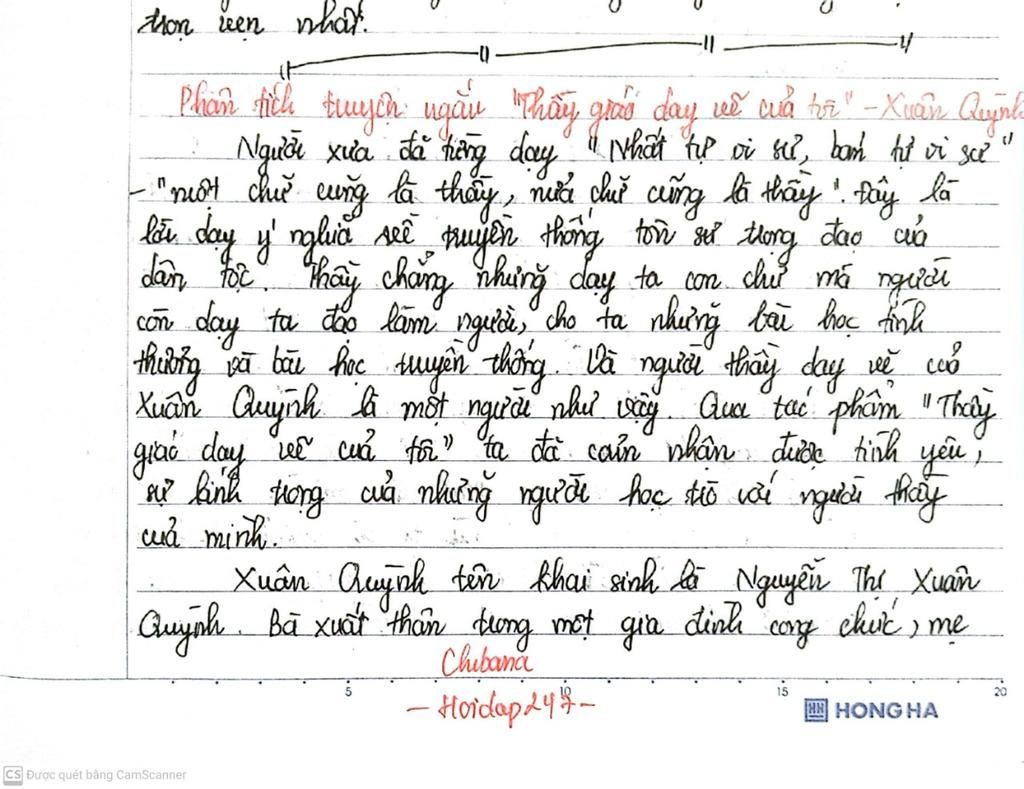 trọn vẹn nhất.
Phân tích truyện ngắn "Thầy giáo dạy vẽ của tôi" - Xuân Quỳnh
Người xưa đã từng dạy "Nhất tự vi sư, bán tự vi sư"
- "một chữ cũng là thầy, nửa chữ cũng là thầy". Đây là
lời dạy ý nghĩa về truyền thống tôn sư trọng đạo của
dân tộc. Thầy chẳng những dạy ta con chữ mà người
còn dạy ta đạo làm người, cho ta những bài học tình
thương và bài học truyền thống. Và người thầy dạy vẽ của
Xuân Quỳnh là một người như vậy. Qua tác phẩm "Thầy
giáo dạy vẽ của tôi" ta đã cảm nhận được tình yêu,
sự kính trọng của những người học trò với người thầy
của mình.
Xuân Quỳnh tên khai sinh là Nguyễn Thị Xuân
Quỳnh. Bà xuất thân trong một gia đình công chức, mẹ
Chibana
5 10 15 20
- Hoidap247 -
HH HONG HA
CS Được quét bằng CamScanner